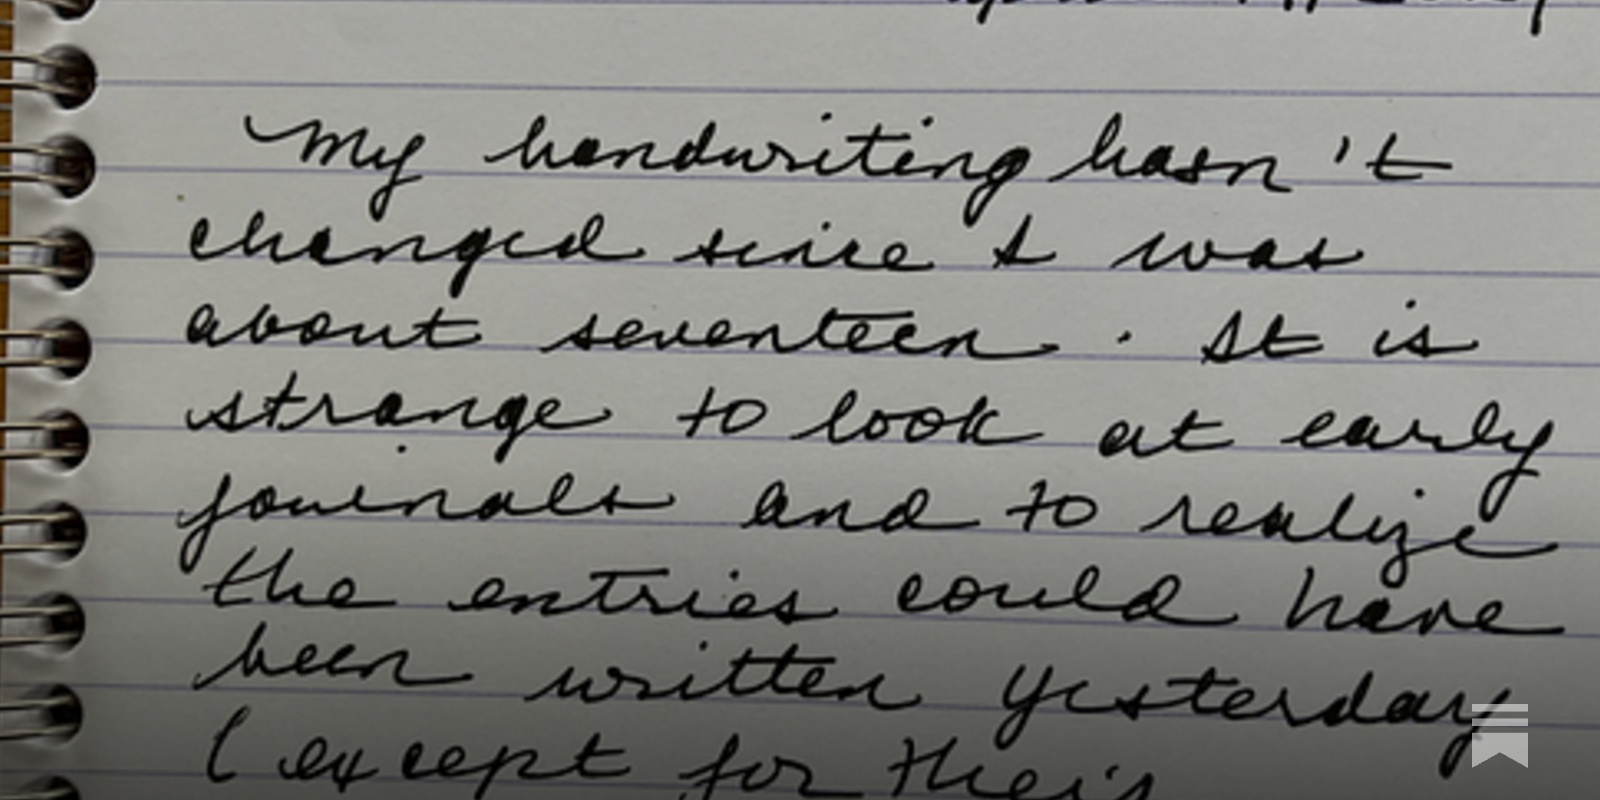 My handwriting hasn't
changed since I was
about seventeen. It is
strange to look at early
journals and to realize
the entries could have
been written yesterday
(except for their